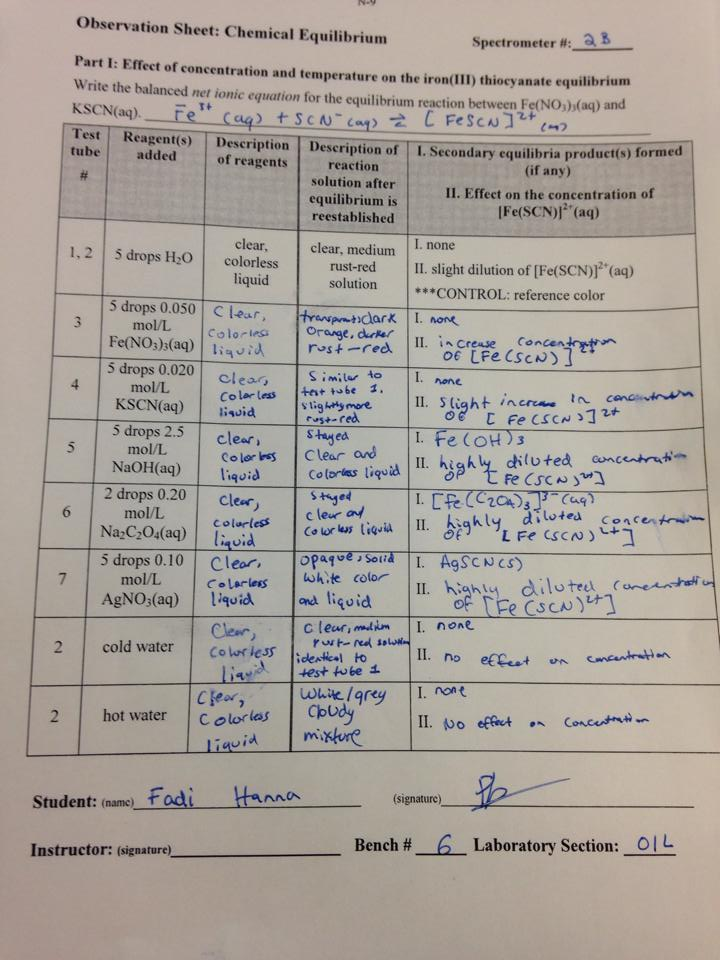 N-9
Observation Sheet: Chemical Equilibrium
Spectrometer #: 2B
Part I: Effect of concentration and temperature on the iron(III) thiocyanate equilibrium
Write the balanced net ionic equation for the equilibrium reaction between Fe(NO₃)₃(aq) and
KSCN(aq). Fe³⁺ (aq) + SCN⁻ (aq) ⇌ [FeSCN]²⁺ (aq)
Test tube #
Reagent(s) added
Description of reagents
Description of reaction solution after equilibrium is reestablished
I. Secondary equilibria product(s) formed (if any)
II. Effect on the concentration of [Fe(SCN)]²⁺(aq)
1, 2
5 drops H₂O
clear,
colorless
liquid
clear, medium
rust-red
solution
I. none
II. slight dilution of [Fe(SCN)]²⁺(aq)
***CONTROL: reference color
3
5 drops 0.050
mol/L
Fe(NO₃)₃(aq)
Clear,
Colorless
liquid
dark
Orange, darker
rust-red
I. none
II. increase concentration
of [Fe(SCN)]²⁺
4
5 drops 0.020
mol/L
KSCN(aq)
clear,
colorless
liquid
Similar to
test tube 1,
slightly more
rust-red
I. none
II. slight increase in concentration
of [Fe(SCN)]²⁺
5
5 drops 2.5
mol/L
NaOH(aq)
clear,
colorless
liquid
Stayed
Clear and
colorless liquid
I. Fe(OH)3
II. highly diluted concentration
of [Fe(SCN)²⁺]
6
2 drops 0.20
mol/L
Na₂C₂O₄(aq)
Clear,
colorless
liquid
Stayed
clear and
colorless liquid
I. [Fe(C₂O₄)₃]³⁻(aq)
II. highly diluted concentration
of [Fe(SCN)²⁺]
7
5 drops 0.10
mol/L
AgNO₃(aq)
Clear,
Colorless
liquid
opaque, solid
white color
and liquid
I. AgSCN(s)
II. highly diluted concentration
of [Fe(SCN)²⁺]
2
cold water
Clear,
colorless
liquid
Clear, medium
rust-red solution
identical to
test tube 1
I. none
II. no effect on concentration
2
hot water
Clear,
Colorless
liquid
White/grey
Cloudy
mixture
I. none
II. No effect on Concentration
Student: (name) Fadi Hanna (signature)
Instructor: (signature) Bench # 6 Laboratory Section: 01L